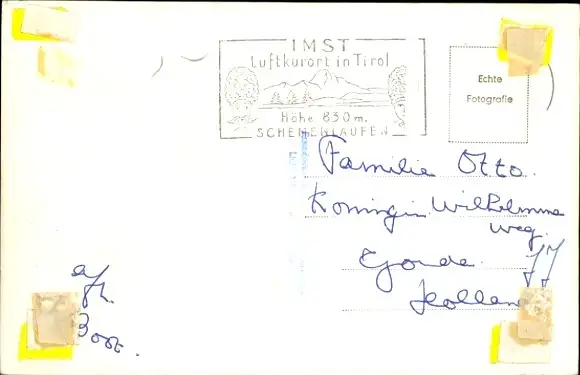 IMST
Luftkurort in Tirol
Höhe 830 m.
SCHEMENLAUFEN
Echte
Fotografie
Familie Otto.
Koningin Wilhelmina
weg.
Gouda.
Holland
afz.
Boot.